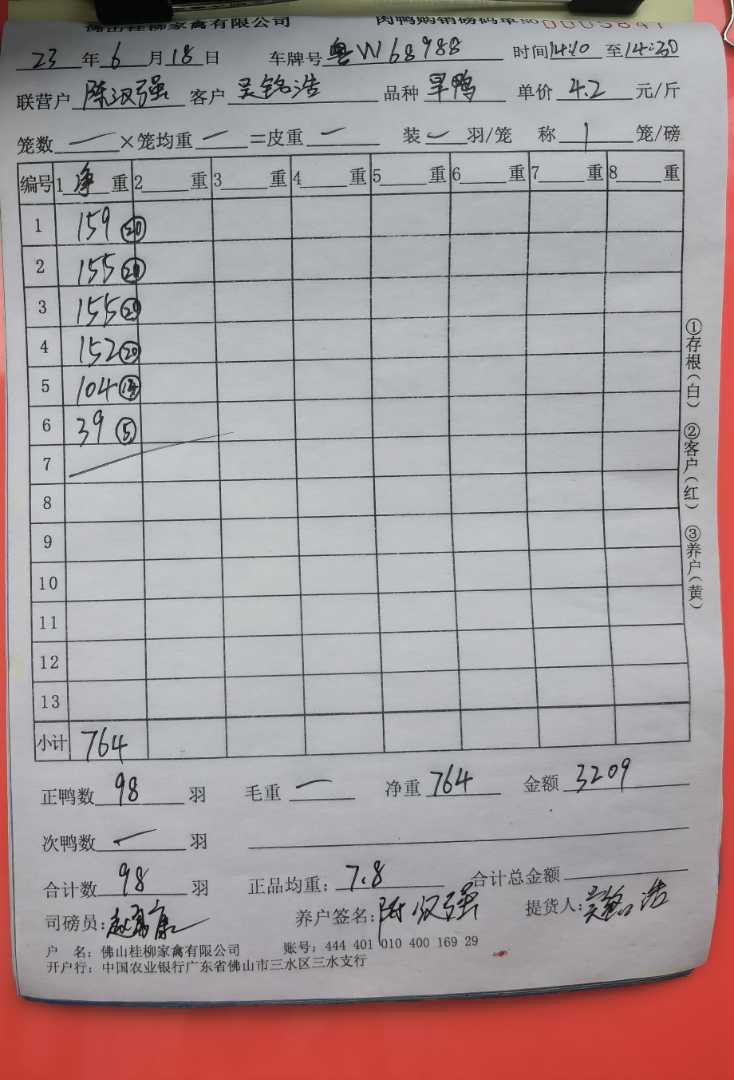 佛山桂柳家禽有限公司 肉鸭购销磅码单 No 0005847
23 年 6 月 18 日 车牌号 粤W68988 时间 14:10 至 14:30
联营户 陈汉强 客户 吴铭浩 品种 旱鸭 单价 4.2 元/斤
笼数 一 ×笼均重 一 =皮重 一 装 一 羽/笼 称 1 笼/磅
编号 1 净 重 2 重 3 重 4 重 5 重 6 重 7 重 8 重
1 159 ⑳
2 155 ⑳
3 155 ⑳
4 152 ⑳
5 104
6 39 ⑤
7
8
9
10
11
12
13
小计 764
正鸭数 98 羽 毛重 一 净重 764 金额 3209
次鸭数 一 羽
合计数 98 羽 正品均重: 7.8 合计总金额
司磅员: 养户签名: 陈汉强 提货人: 吴铭浩
户 名: 佛山桂柳家禽有限公司 账号: 444 401 010 400 169 29
开户行: 中国农业银行广东省佛山市三水区三水支行
①存根(白) ②客户(红) ③养户(黄)